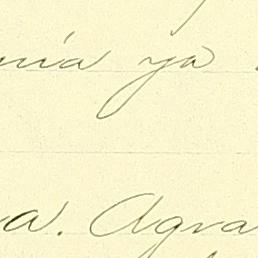 nía ya
a. Agra